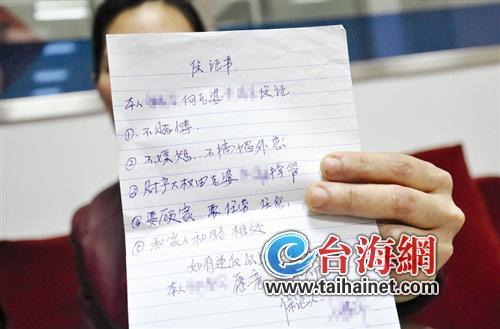 保证书
本人 向老婆 保证
①不赌博.
②不嫖娼.不搞婚外恋
③财产大权由老婆 掌管
④要顾家.要任劳任怨
⑤和家人和睦相处
如有违反
本人 愿意
保证人:
台海網
www.taihainet.com